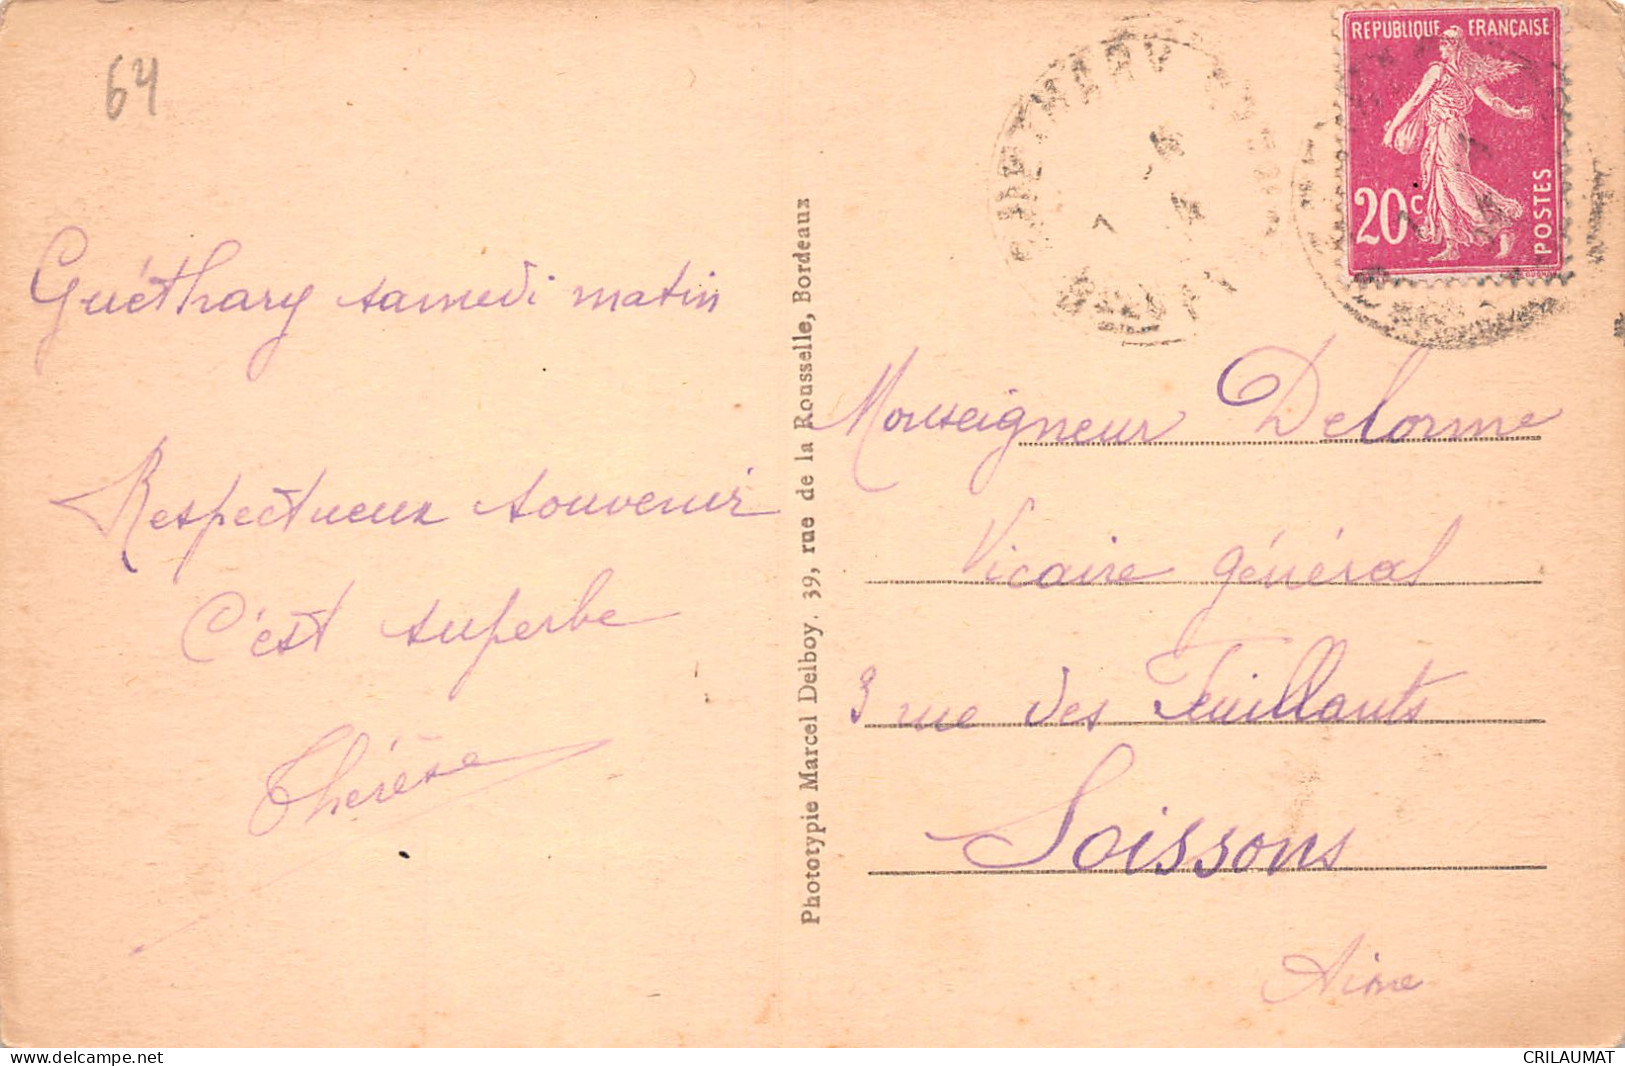 64
Guéthary samedi matin
Respectueux souvenir
C'est superbe
Thérèse
Phototypie Marcel Delboy. 39, rue de la Rousselle, Bordeaux
REPUBLIQUE FRANÇAISE
20c
POSTES
GUETHARY
Monseigneur Delorme
Vicaire général
3 rue des Feuillants
Soissons
Aisne
CRILAUMAT